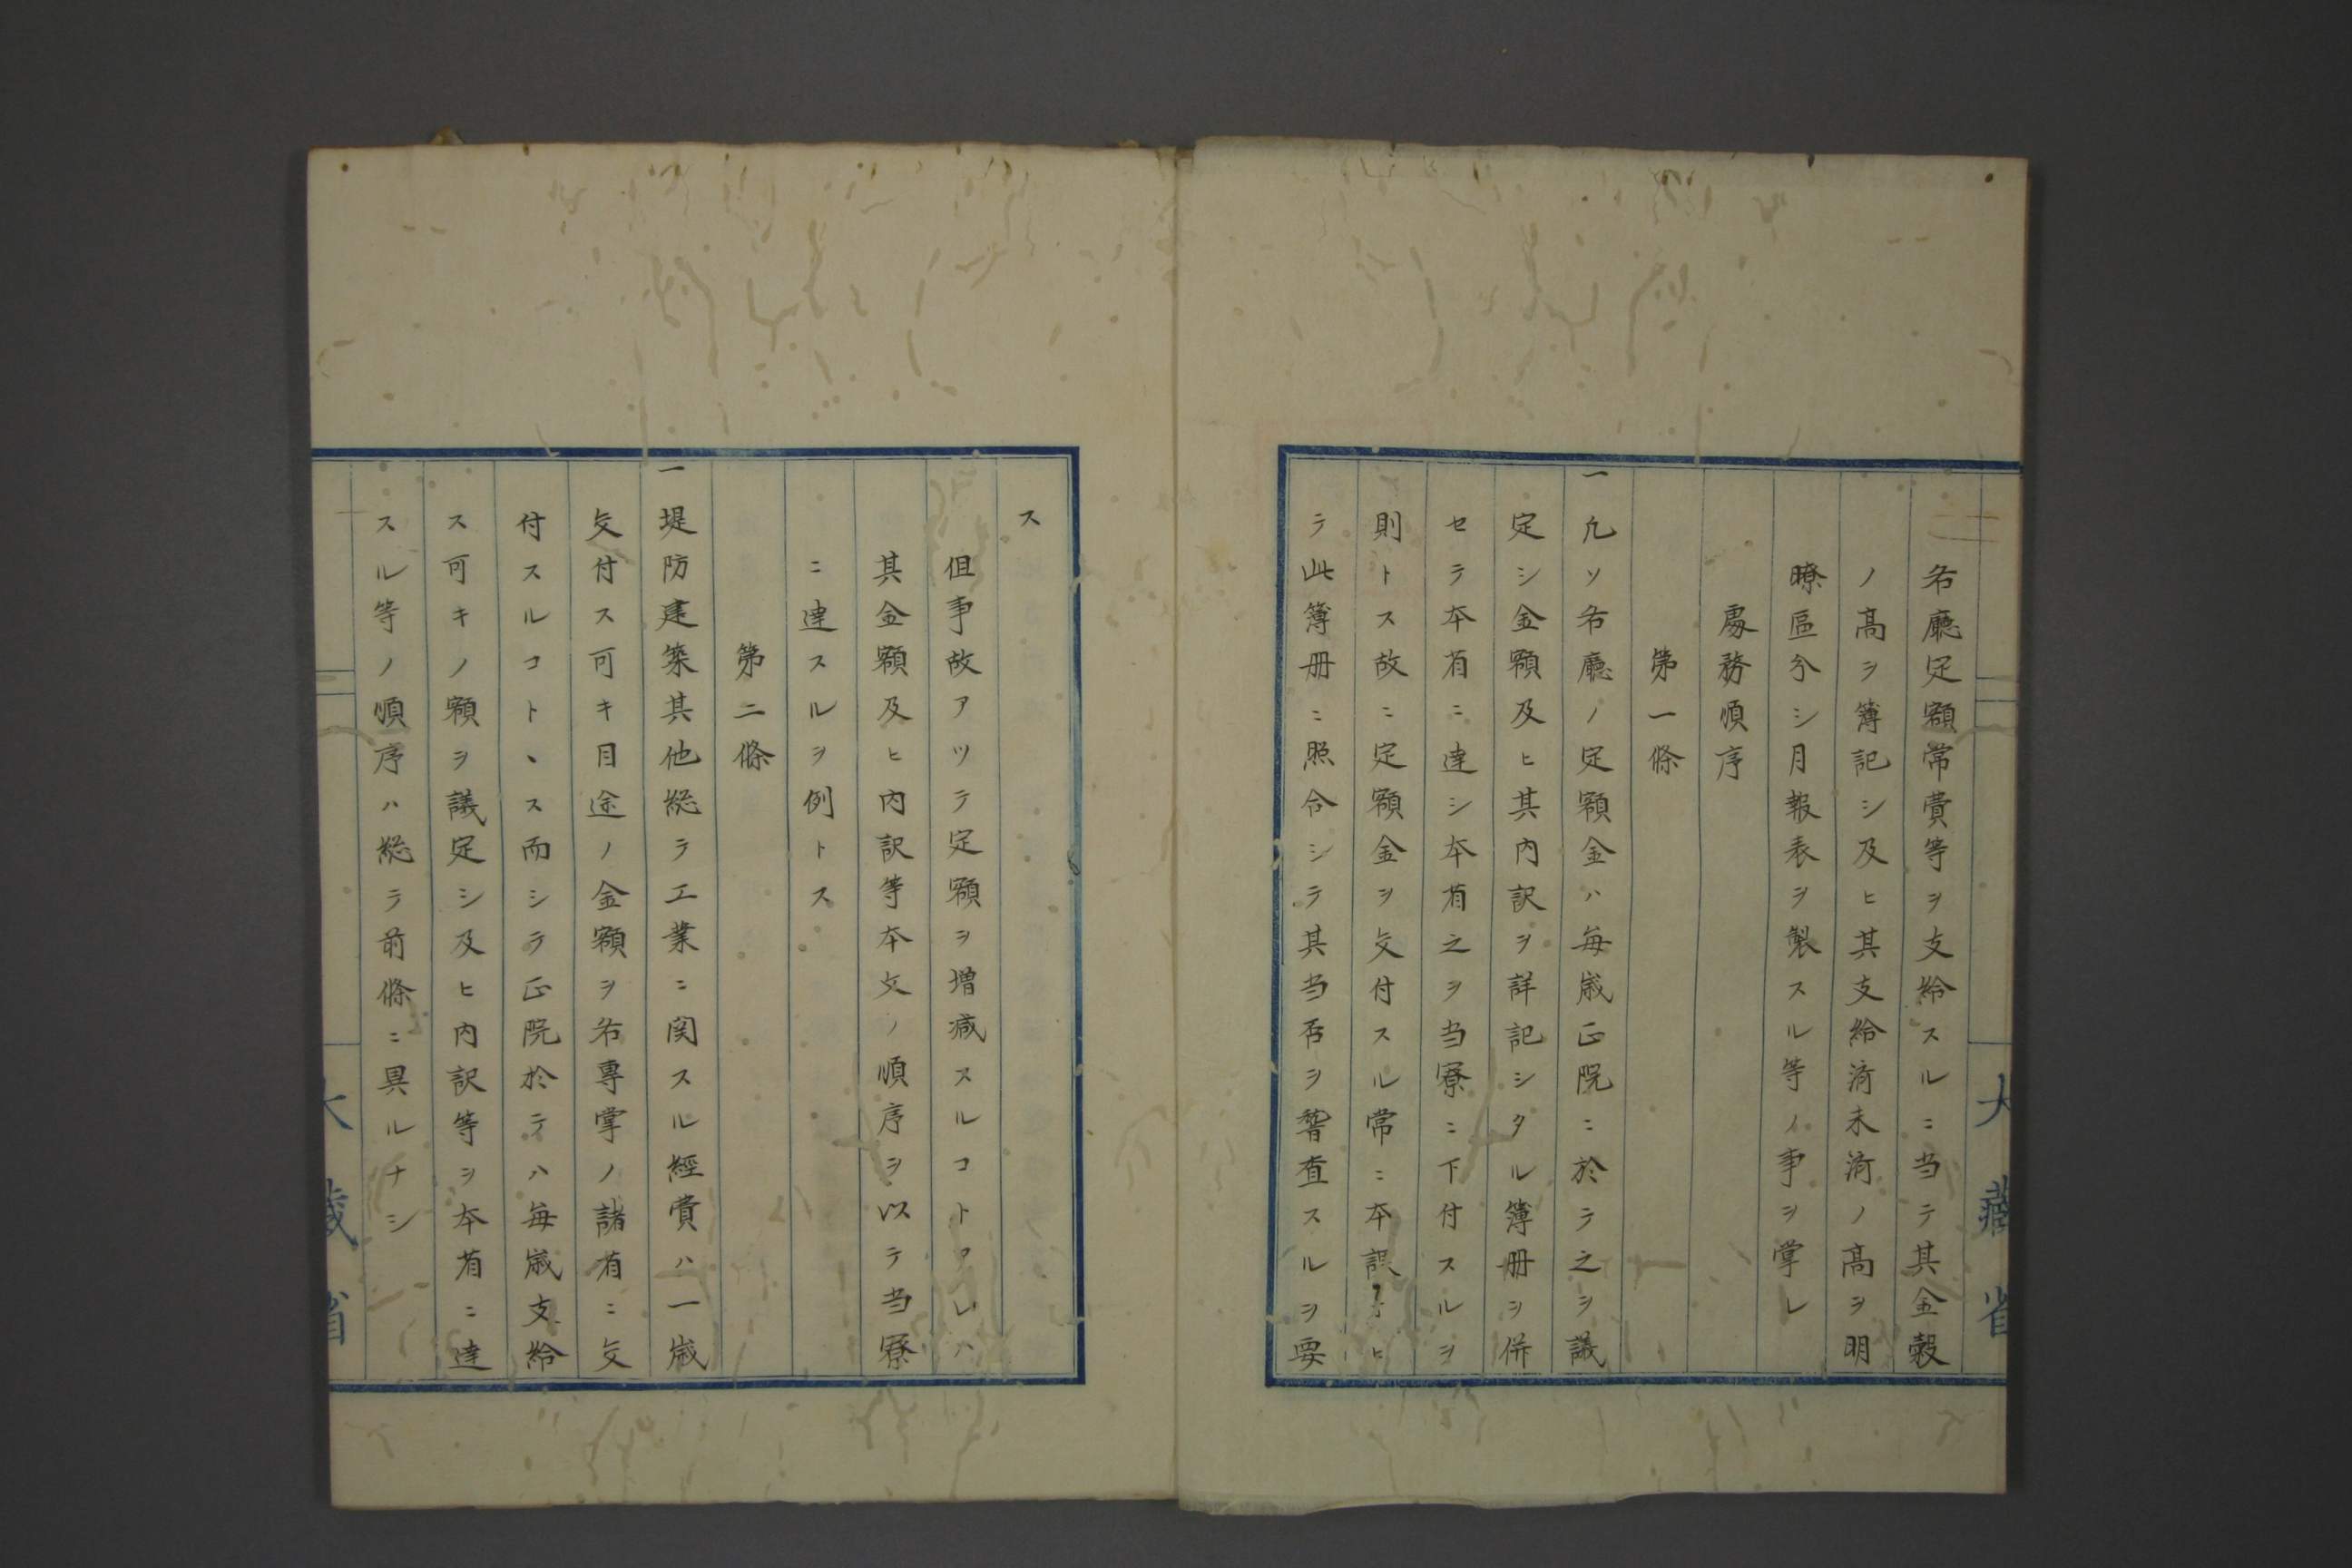 各廳定額常費等ヲ支給スルニ当テ其金穀
ノ高ヲ簿記シ及ヒ其支給済未済ノ高ヲ明
瞭區分シ月報表ヲ製スル等ノ事ヲ掌レ
處務順序
第一條
一凡ソ各廳ノ定額金ハ毎歳正院ニ於テ之ヲ議
定シ金額及ヒ其内訳ヲ詳記シタル簿冊ヲ併
セテ本省ニ達シ本省之ヲ当寮ニ下付スルヲ
則トス故ニ定額金ヲ交付スル常ニ本議及ヒ
テ此簿冊ニ照合シテ其当否ヲ督査スルヲ要
大藏省
ス
但事故アツテ定額ヲ増減スルコトアレハ
其金額及ヒ内訳等本文ノ順序ヲ以テ当寮
ニ達スルヲ例トス
第二條
一堤防建築其他総テ工業ニ関スル經費ハ一歳
交付ス可キ目途ノ金額ヲ各專掌ノ諸省ニ交
付スルコトヽス而シテ正院於テハ毎歳支給
ス可キノ額ヲ議定シ及ヒ内訳等ヲ本省ニ達
スル等ノ順序ハ総テ前條ニ異ルナシ
大藏省